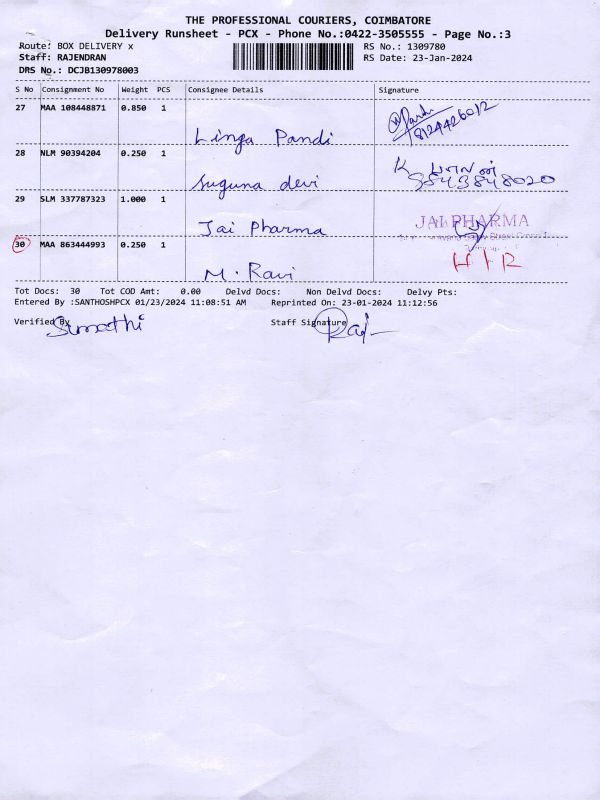 THE PROFESSIONAL COURIERS, COIMBATORE
Delivery Runsheet - PCX - Phone No.:0422-3505555 - Page No.:3
Route: BOX DELIVERY x RS No.: 1309780
Staff: RAJENDRAN RS Date: 23-Jan-2024
DRS No.: DCJB130978003
S No Consignment No Weight PCS Consignee Details Signature
27 MAA 108448871 0.850 1
Linga Pandi 8124426012
28 NLM 90394204 0.250 1
Suguna devi 9843848020
29 SLM 337787323 1.000 1
Jai Pharma JAI PHARMA
30 MAA 863444993 0.250 1
M. Ravi
Tot Docs: 30 Tot COD Amt: 0.00 Delvd Docs: Non Delvd Docs: Delvy Pts:
Entered By :SANTHOSHPCX 01/23/2024 11:08:51 AM Reprinted On: 23-01-2024 11:12:56
Verified By Staff Signature
Sumathi Raj